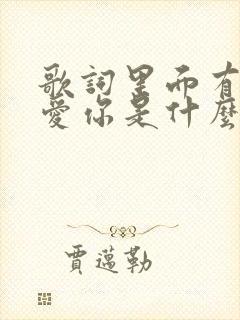 歌詞里而有
愛你是什麼
賈邁勒